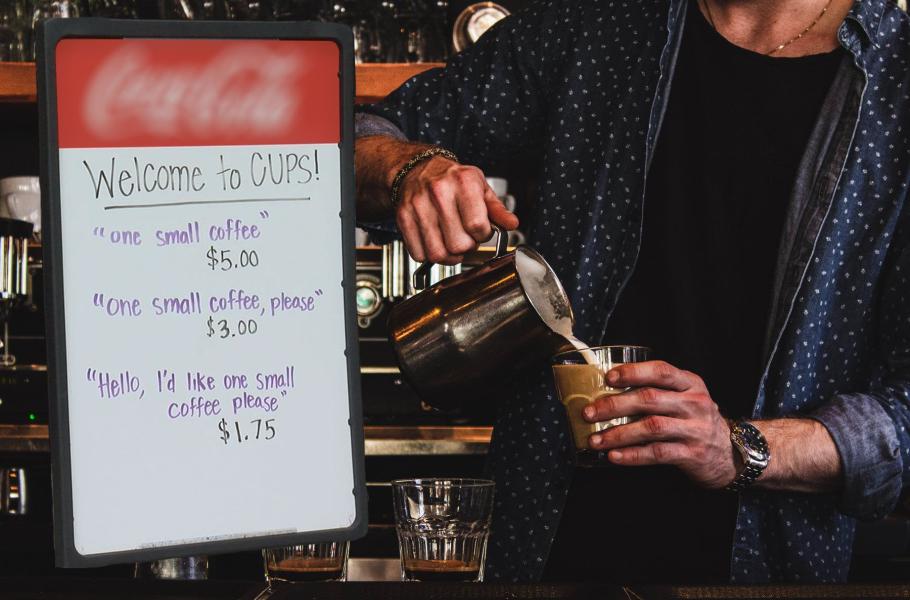 Welcome to CUPS!
"one small coffee"
$5.00
"One small coffee, please"
$3.00
"Hello, I'd like one small
coffee please"
$1.75